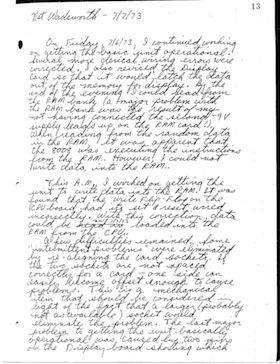 13
Vet Wadsworth - 7/7/73
On Friday, 7/6/73, I continued working
on getting the basic unit operational.
Several more clerical wiring errors were
corrected. I also revised the Display
card so that it would latch the data
out of the memory for display. In the
end of the evening I could read from
the RAM bank (a major problem with
the RAM bank was the result of my
not having connected the second -9V
supply leads up on the RAM card).
When reading from the random data
in the RAM, it was apparent that
the 8008 was executing the instructions
from the RAM. However, I could not
write data into the RAM.
This A.M., I worked on getting the
unit to write data into the RAM. It was
found that the write flip-flop on the
CPU board had its set & reset wires
incorrectly. With this correction, data
could be loaded into the
RAM from the CPU.
A few difficulties remained. Some
"intermittent problems" were eliminated
by re-aligning the card sockets. If
the two sockets are not spaced
correctly for a card, one side can
easily become offset enough to cause
problems. This is a mechanical
item that should be considered in
light of the fact that a larger (probably
not as available) socket would
eliminate the problem. The last major
problem to getting the unit basically
operational was caused by two
on the Display board shorting which